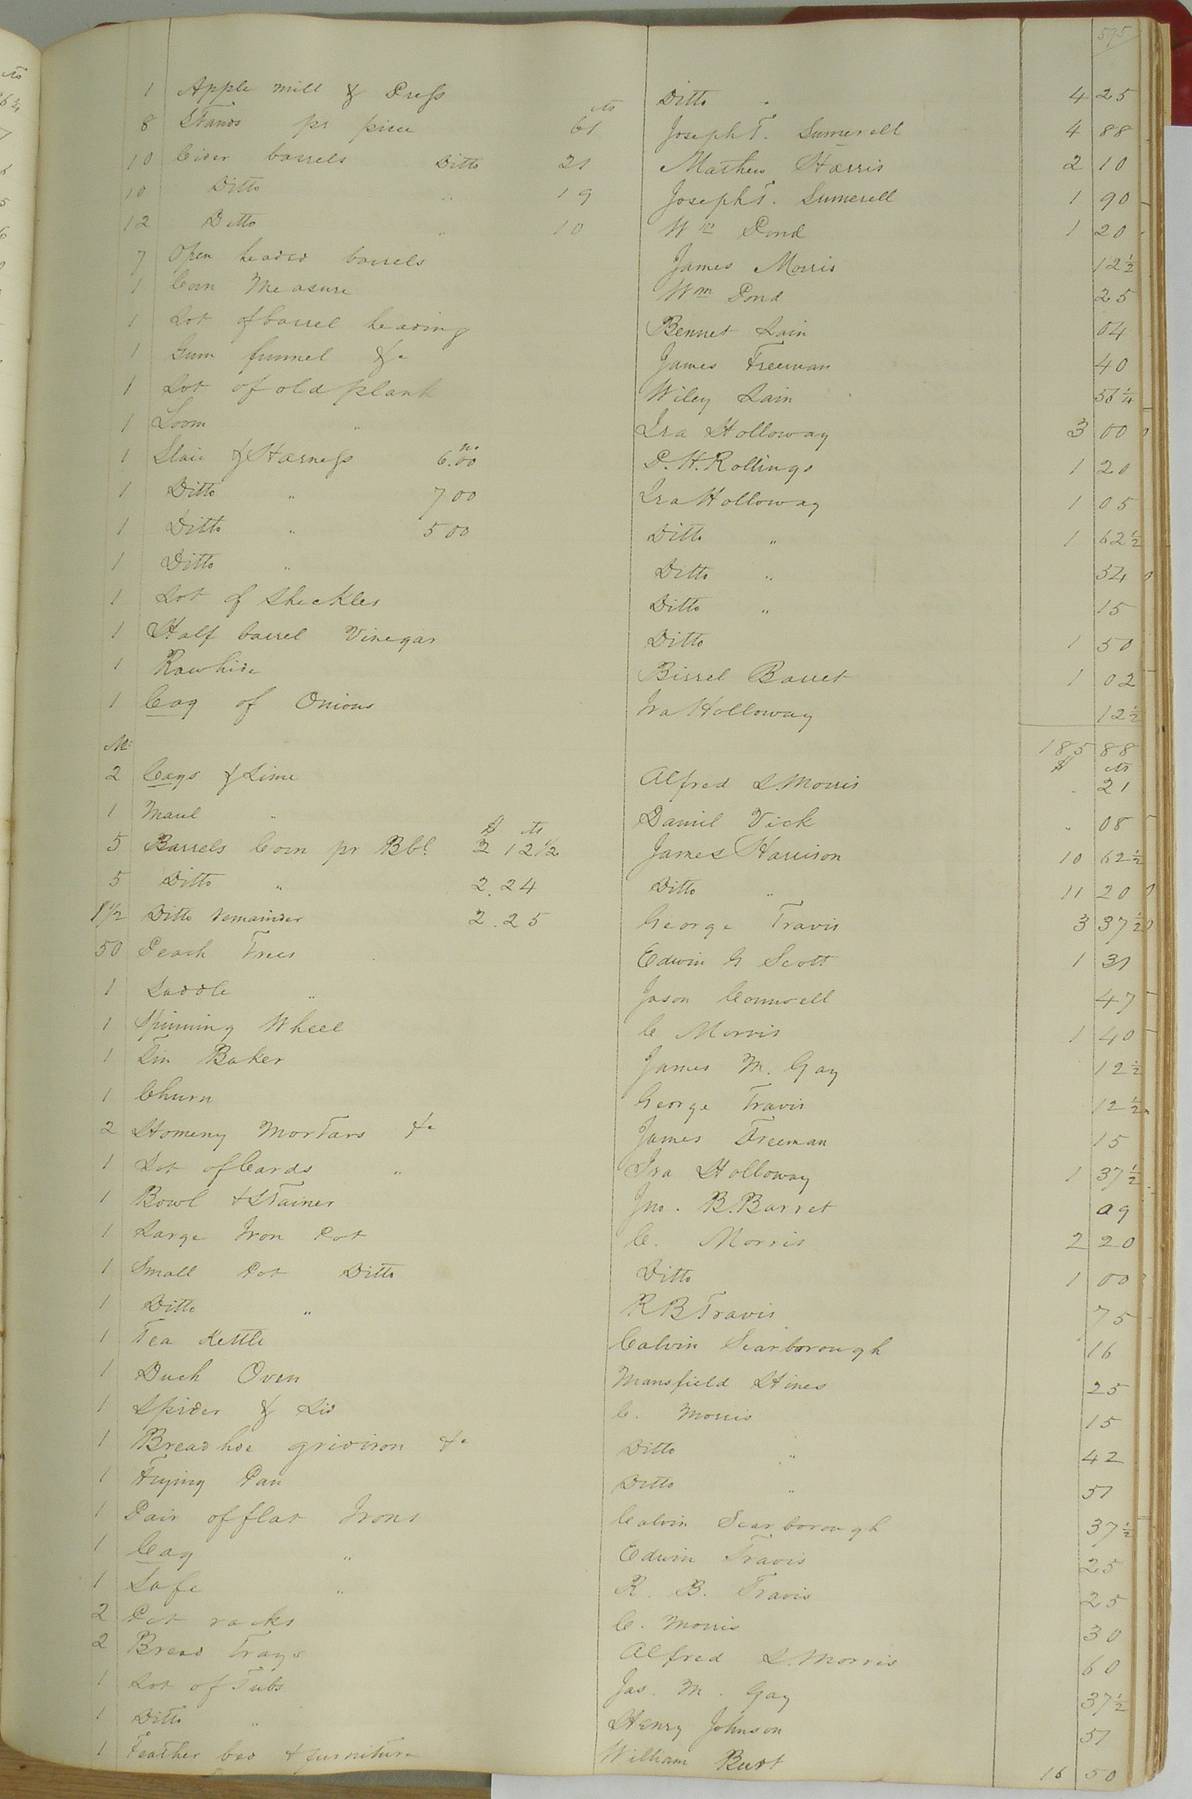 575
1 Apple mill & Press Ditto " 4 25
cts
8 Stands pr piece 61 Joseph T. Sumerell 4 88
10 Cider barrels Ditto 21 Mathew Harris 2 10
10 Ditto " 19 Joseph T. Sumerell 1 90
12 Ditto " 10 Wm Pond 1 20
7 Open headed barrels James Morris 12½
1 Corn Measure Wm Pond 25
1 Lot of barrel heading Bennet Lain 04
1 Gum funnel &c James Freeman 40
1 Lot of old plank Wiley Lain 56¼
1 Loom " Ira Holloway 3 00
1 Slaie & Harness no 6.00 P. H. Rollings 1 20
1 Ditto " 700 Ira Holloway 1 05
1 Ditto " 500 Ditto " 1 62½
1 Ditto " Ditto " 54
1 Lot of Sheckles Ditto " 15
1 Half barrel Vinegar Ditto 1 50
1 Rawhide Birrel Barret 1 02
1 Cag of Onions Ira Holloway 12½
No 185 88
$ cts
2 Cags & Lime Alfred L. Morris " 21
1 Maul " Daniel Vick " 08
$ cts
5 Barrels Corn pr Bbl. 2 12½ James Harrison 10 62½
5 Ditto " 2.24 Ditto " 11 20
1½ Ditto remainder 2.25 George Travis 3 37½
50 Peach Trees Edwin G Scott 1 31
1 Saddle " Jason Counsell 47
1 Spinning Wheel C Morris 1 40
1 Tin Baker James M. Gay 12½
1 Churn George Travis 12½
2 Homeny Mortars &c James Freeman 15
1 Lot of Cards " Ira Holloway 1 37½
1 Bowl & Strainer Jno. B. Barret 09
1 Large Iron Pot C. Morris 2 20
1 Small Pot Ditto Ditto 1 00
1 Ditto " R B Travis 75
1 Tea Kettle Calvin Scarborough 16
1 Duch Oven Mansfield Hines 25
1 Spider & Lid C. Morris 15
1 Bread hoe gridiron &c Ditto " 42
1 Frying Pan Ditto " 51
1 Pair of flat Irons Calvin Scarborough 37½
1 Cag " Edwin Travis 25
1 Safe " R. B. Travis 25
2 Pot racks C. Morris 30
2 Bread Trays Alfred L. Morris 60
1 Lot of Tubs Jas. M. Gay 37½
1 Ditto " Henry Johnson 51
1 Feather bed & furniture William Burt 16 50